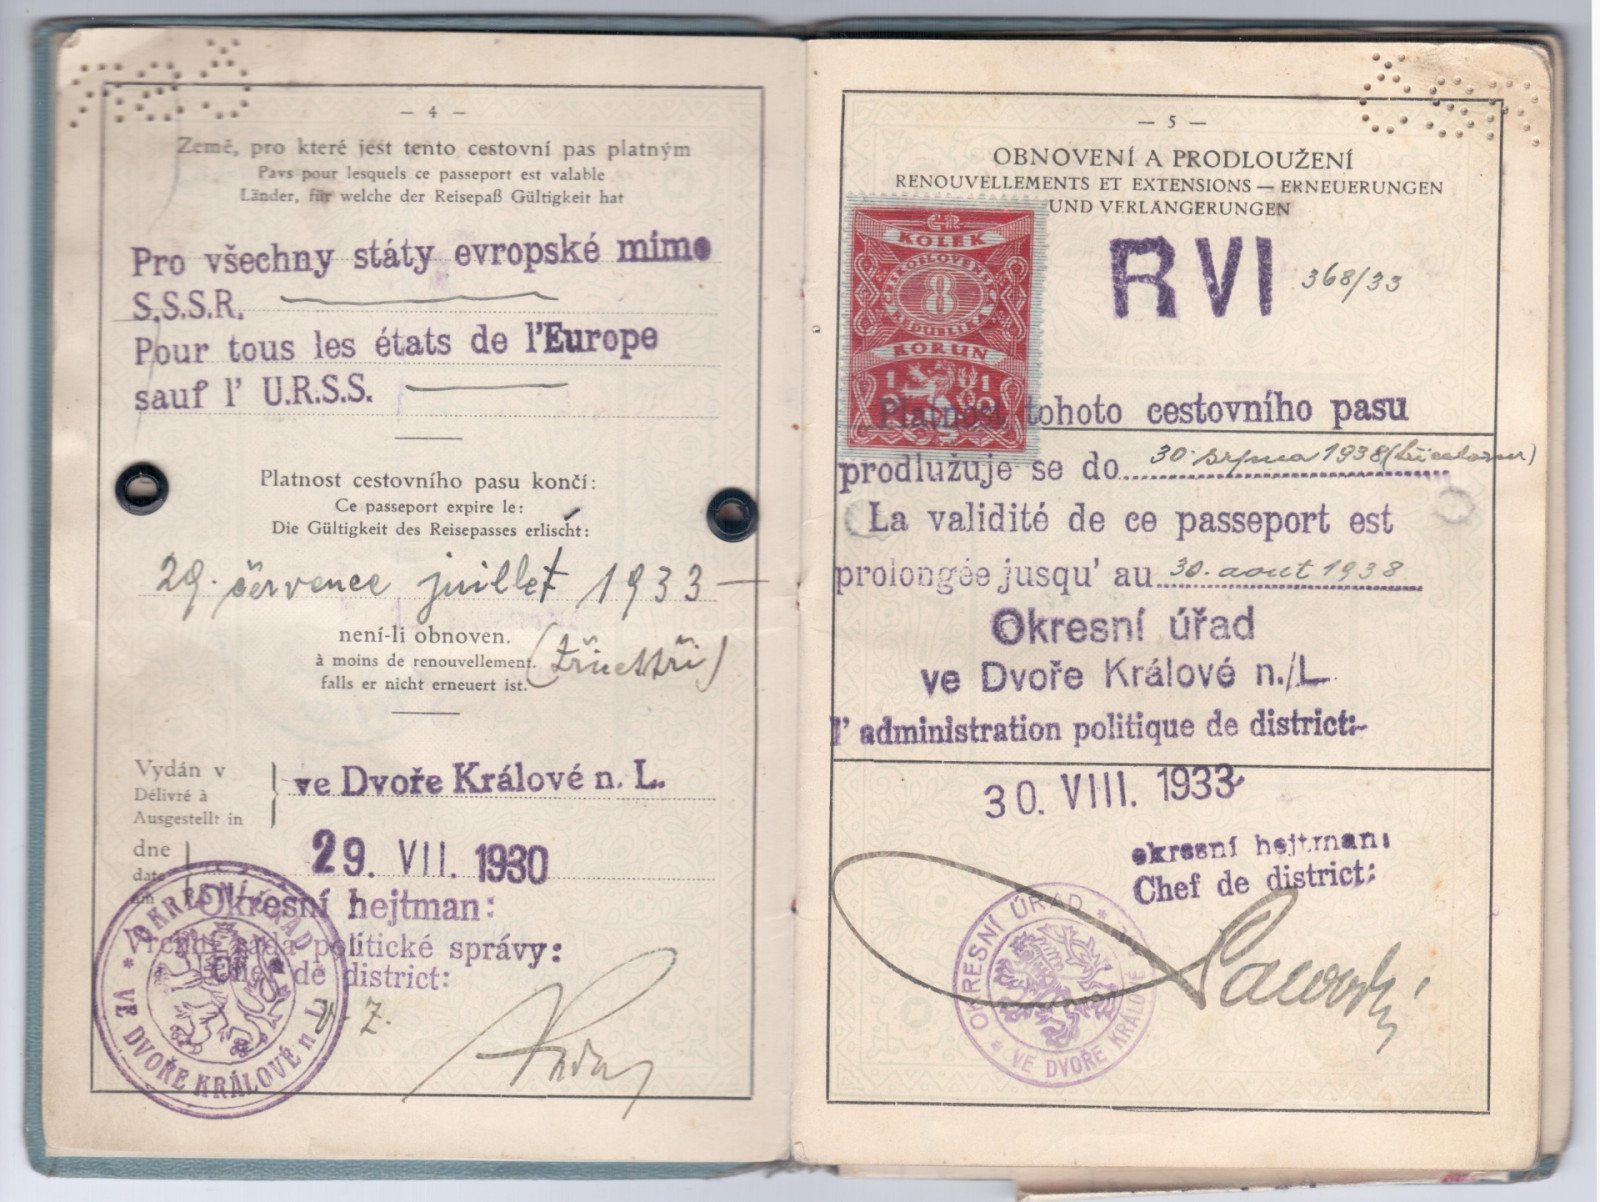 — 4 —
Země, pro které jest tento cestovní pas platným
Pays pour lesquels ce passeport est valable
Länder, für welche der Reisepaß Gültigkeit hat
Pro všechny státy evropské mimo
S.S.S.R.
Pour tous les états de l'Europe
sauf l' U.R.S.S.
Platnost cestovního pasu končí:
Ce passeport expire le:
Die Gültigkeit des Reisepasses erlischt:
29. července juillet 1933
není-li obnoven.
à moins de renouvellement.
falls er nicht erneuert ist.
(třicettři)
Vydán v
Délivré à
Ausgestellt in
ve Dvoře Králové n. L.
dne
date
am
29. VII. 1930
Okresní hejtman:
Vrchní rada politické správy:
Chef de district:
v. z.
OKRESNÍ ÚŘAD * VE DVOŘE KRÁLOVÉ n. L. *
— 5 —
OBNOVENÍ A PRODLOUŽENÍ
RENOUVELLEMENTS ET EXTENSIONS — ERNEUERUNGEN
UND VERLÄNGERUNGEN
ČR
KOLEK
ČESKOSLOVENSKÁ
8
REPUBLIKA
KORUN
RVI 368/33
Platnost tohoto cestovního pasu
prodlužuje se do 30. srpna 1938
La validité de ce passeport est
prolongée jusqu' au 30. aout 1938
Okresní úřad
ve Dvoře Králové n./L.
l' administration politique de district:
30. VIII. 1933
okresní hejtman:
Chef de district:
OKRESNÍ ÚŘAD * VE DVOŘE KRÁLOVÉ